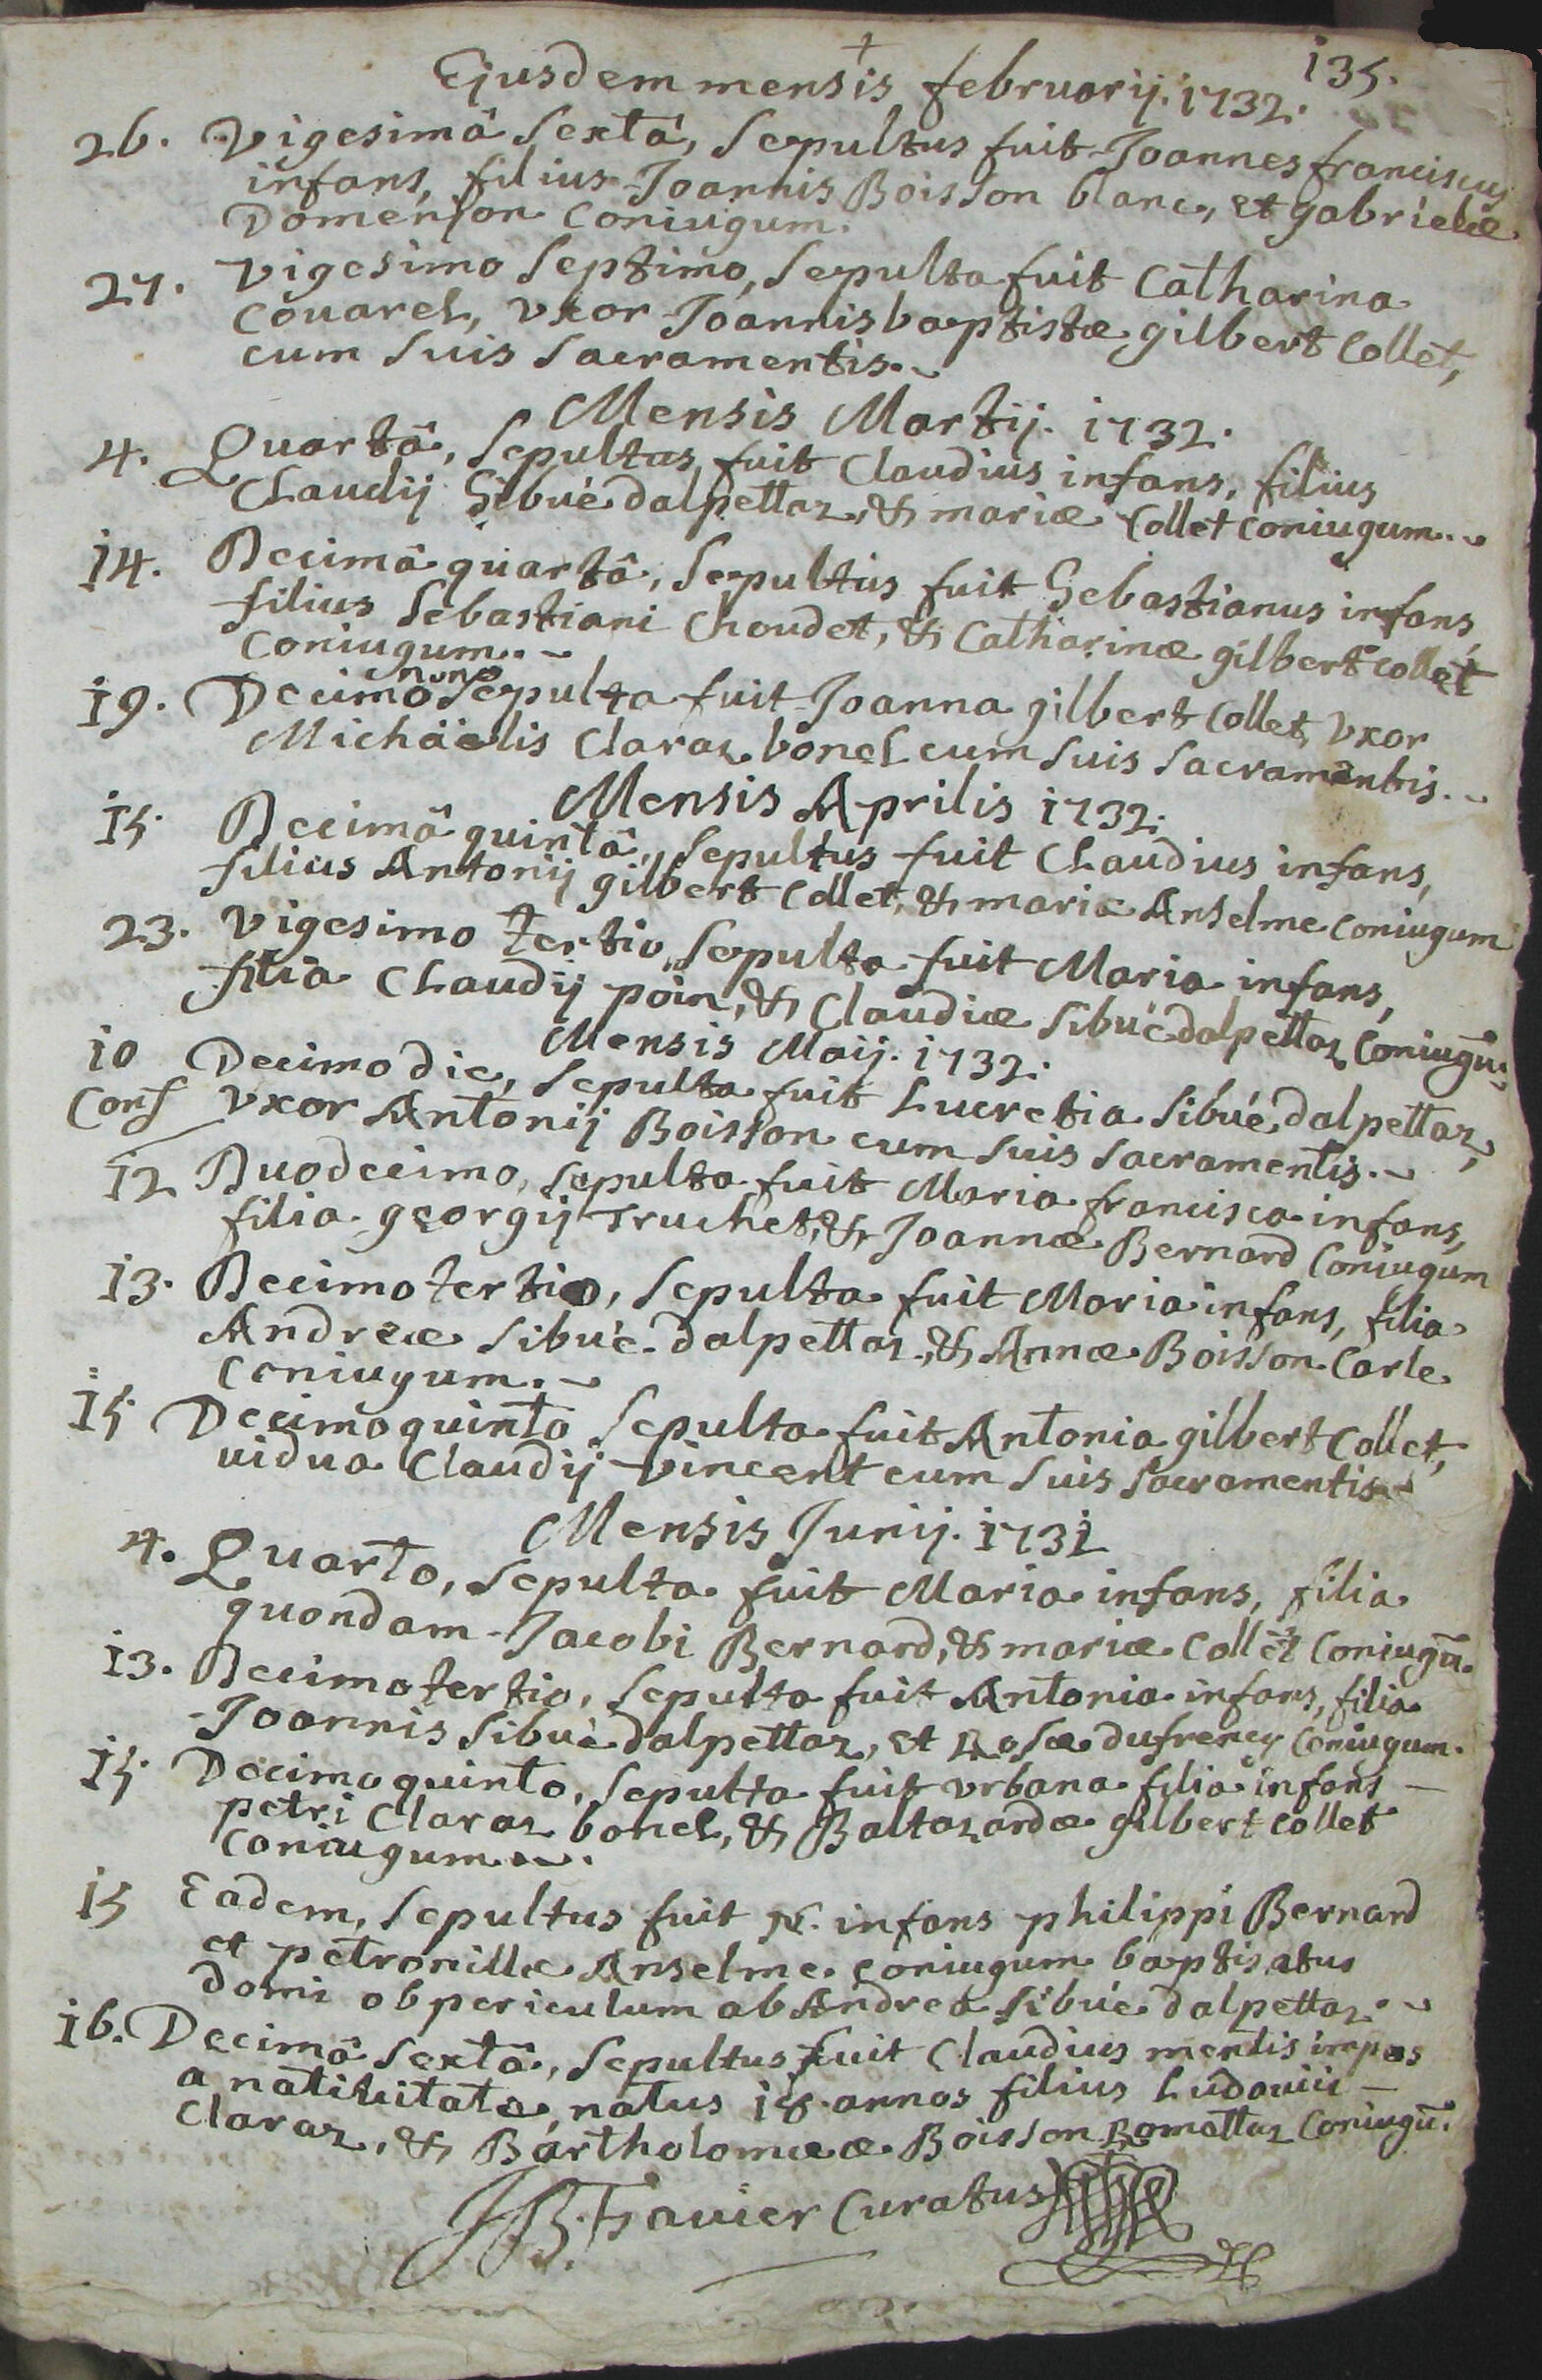 135.
+
Ejusdem mensis februarij. 1732.
26. Vigesimâ Sextâ, Sepultus fuit Joannes franciscus
infans, filius Joannis Boisson blanc, et gabrielæ
Domenjon Coniugum.
27. Vigesimo Septimo, Sepulta fuit Catharina
Couarel, vxor Joannisbaptistæ gilbert Collet,
cum Suis Sacramentis.
Mensis Martij. 1732.
4. Quartâ, Sepultus fuit Claudius infans, filius
Claudij Sibué dalpettaz, & mariæ Collet Coniugum.
14. Decimâ quartâ, Sepultus fuit Sebastianus infans,
filius Sebastiani Choudet, & Catharinæ gilbert collet
Coniugum.
nono
19. Decimo Sepulta fuit Joanna gilbert Collet, vxor
Michäelis Claraz bonel cum Suis Sacramentis.
Mensis Aprilis 1732.
15. Decimâ quintâ, Sepultus fuit Claudius infans,
filius Antonij gilbert Collet, & mariæ Anselme Coniugum
23. Vigesimo tertio, Sepulta fuit Maria infans,
filia Claudij poin, & Claudiæ Sibué dalpettaz Coniugū.
Mensis Maij. 1732.
10 Decimo die, Sepulta fuit Lucretia Sibué dalpettaz,
Conf vxor Antonij Boisson cum Suis Sacramentis.
12 Duodecimo, Sepulta fuit Maria francisca infans,
filia georgij Truchet, & Joannæ Bernard Coniugum
13. Decimo tertio, Sepulta fuit Maria infans, filia
Andreæ Sibué dalpettaz, & Annæ Boisson Carle
Coniugum.
15 Decimo quinto Sepulta fuit Antonia gilbert Collet,
uidua Claudij Vincent cum Suis Sacramentis
Mensis Junij. 1732
4. Quarto, Sepulta fuit Maria infans, filia
quondam Jacobi Bernard, & mariæ Collet Coniugū.
13. Decimo tertio, Sepulta fuit Antonia infans, filia
Joannis Sibué dalpettaz, et Rosæ dufreney Coniugum.
15. Decimo quinto, Sepulta fuit vrbana filia infans
petri Claraz bonel, & Baltazardæ gilbert Collet
Coniugum.
15 Eadem, Sepultus fuit N. infans philippi Bernard
et petronillæ Anselme coniugum baptisatus
domi ob periculum ab Andrea Sibué dalpettaz.
16. Decimâ Sextâ, Sepultus fuit Claudius mentis impos
a natiuitate, natus 18. annos filius Ludouici
Claraz, & Bartholomææ Boisson Romettaz Coniugū.
JB. Favier Curatus